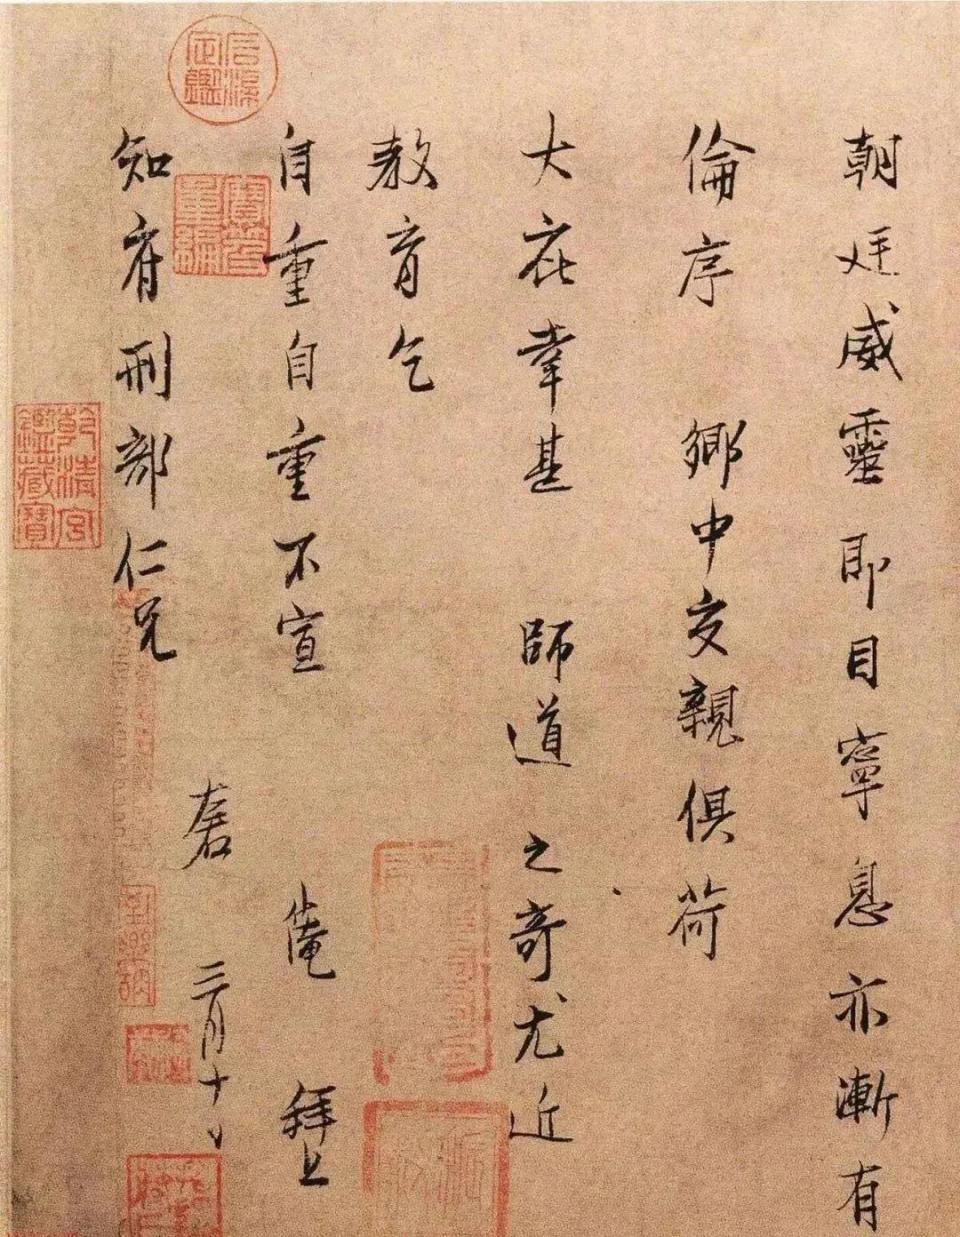 朝廷威靈即目寧息亦漸有
倫序 鄉中交親俱荷
大庇幸甚 師道之奇尤近
教育乞
自重自重不宣 仲淹 拜上
知府刑部仁兄
左右 三月十
石渠定鑑
寶笈重編
乾清宮鑑藏寶